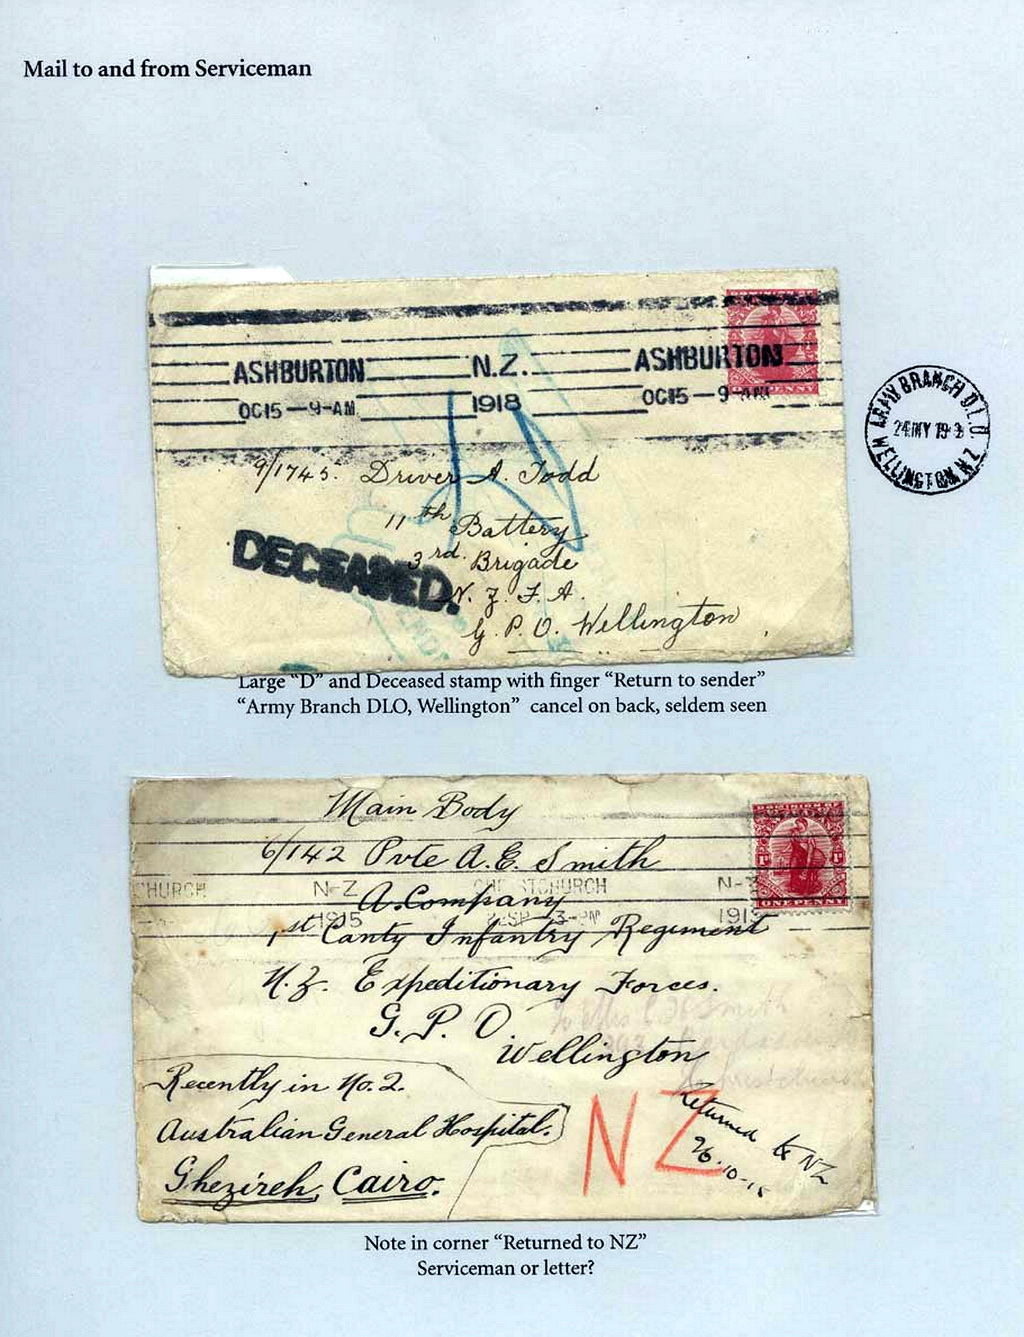 Mail to and from Serviceman
DOMINION OF
ASHBURTON N.Z. ASHBURTON
OC15—9-AM 1918 OC15—9-AM
PENNY
ARMY BRANCH D.L.O.
24 MY 19
WELLINGTON N.Z.
9/1745. Driver A. Todd
11th Battery
DECEASED.
3rd. Brigade
N. Z. F. A.
G. P. O. Wellington
Large "D" and Deceased stamp with finger "Return to sender"
"Army Branch DLO, Wellington" cancel on back, seldem seen
Main Body
DOMINION OF
6/142 Pvte A. E. Smith
1D 1D
CHURCH N-Z CHRISTCHURCH N-Z
A. Company
ONE PENNY
1915 SP 3-PM 191
1st Canty Infantry Regiment
N. Z. Expeditionary Forces.
G. P. O.
Smith
Wellington
Recently in No. 2.
Australian General Hospital.
Ghezireh, Cairo.
NZ
Returned to NZ
26-10-15
Note in corner "Returned to NZ"
Serviceman or letter?